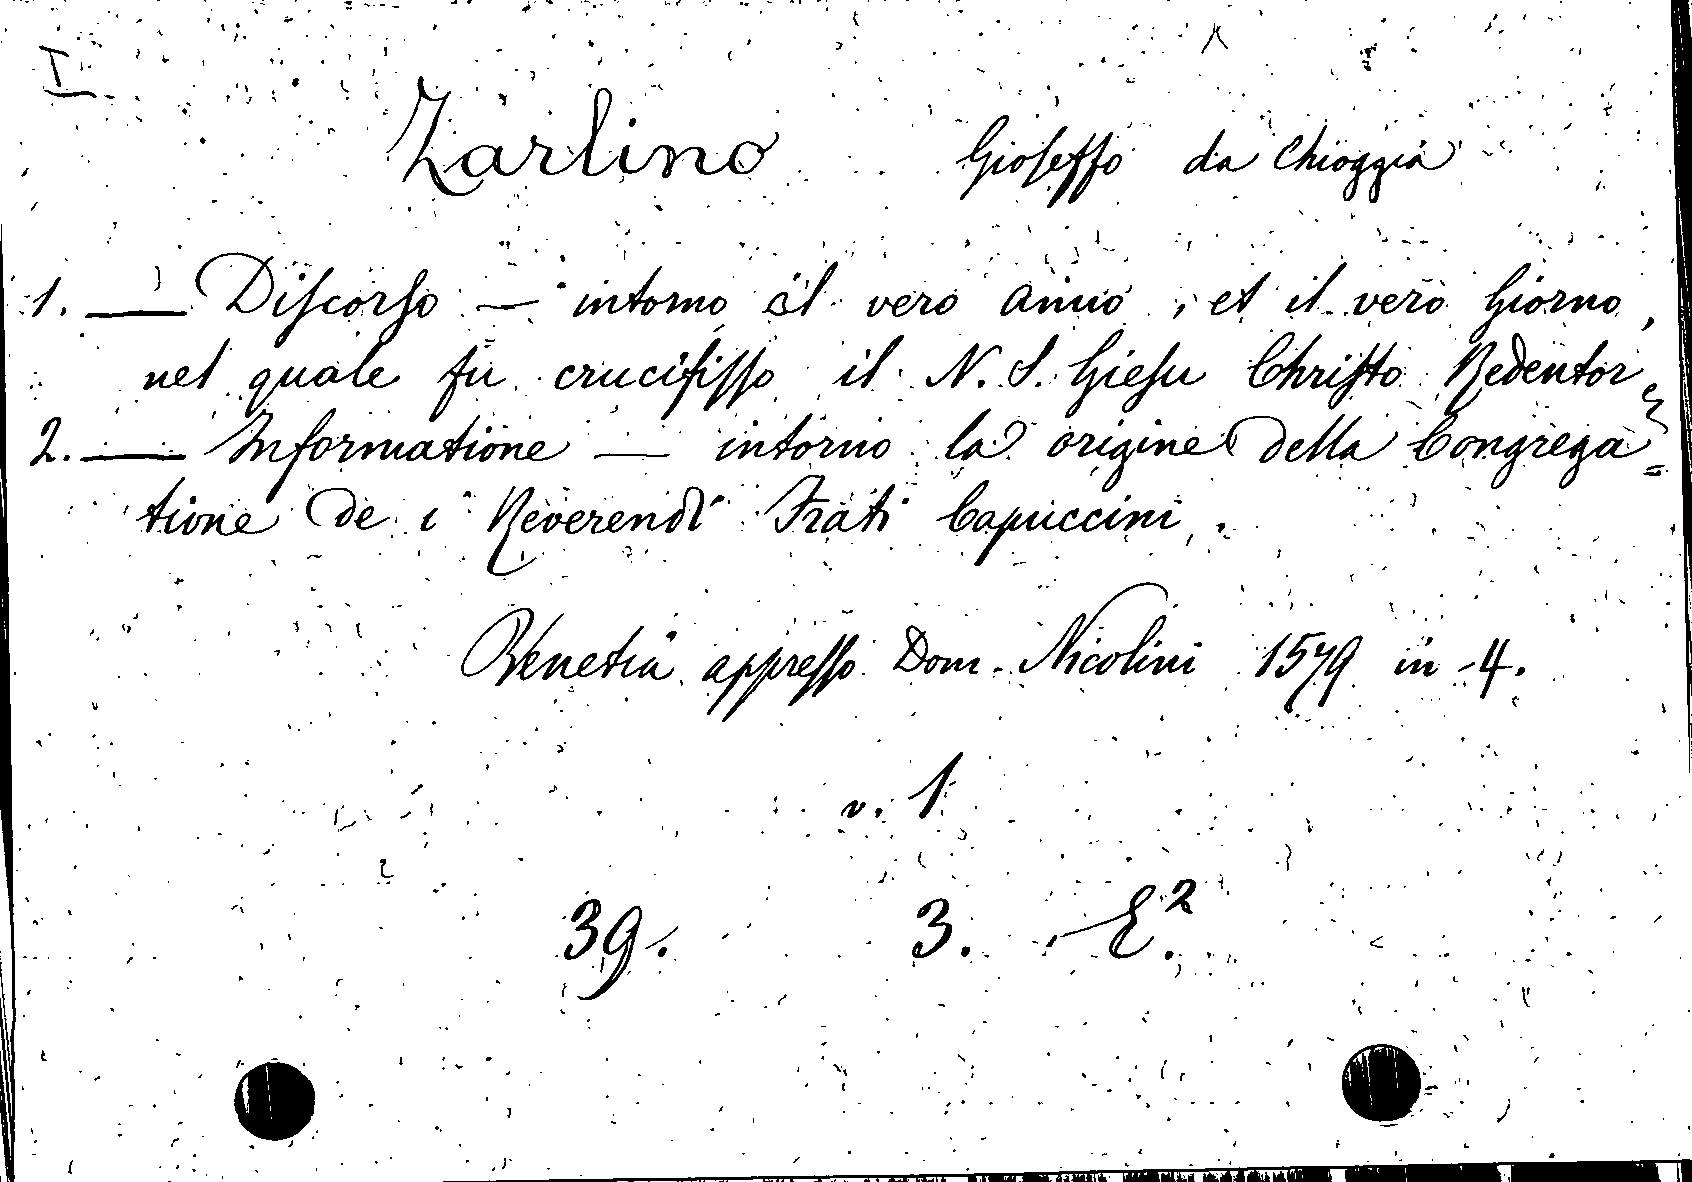 I
Zarlino Gioſeffo da Chioggia
1. — Diſcorſo — intorno il vero anno, et il vero Giorno,
nel quale fu crucifiſſo il N. S. Gieſu Chriſto Redentor
2. — Informatione — intorno la origine della Congrega=
tione de i Reverendi Frati Capuccini.
Venetia appreſſo Dom. Nicolini 1579 in 4.
v. 1
39. 3. E.²